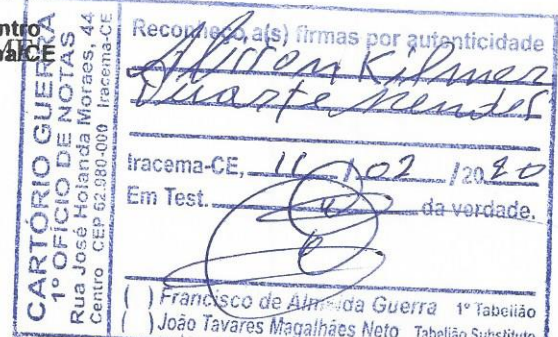 ntro
CARTÓRIO GUERRA
1º OFÍCIO DE NOTAS
Rua José Holanda Moraes, 44
Centro CEP 62.980-000 Iracema-CE
Reconheço, a(s) firmas por autenticidade
Kilmer
Duarte Mendes
Iracema-CE, 11 / 02 /2020
Em Test. da verdade.
( ) Francisco de Almeida Guerra 1º Tabelião
( ) João Tavares Magalhães Neto Tabelião Substituto